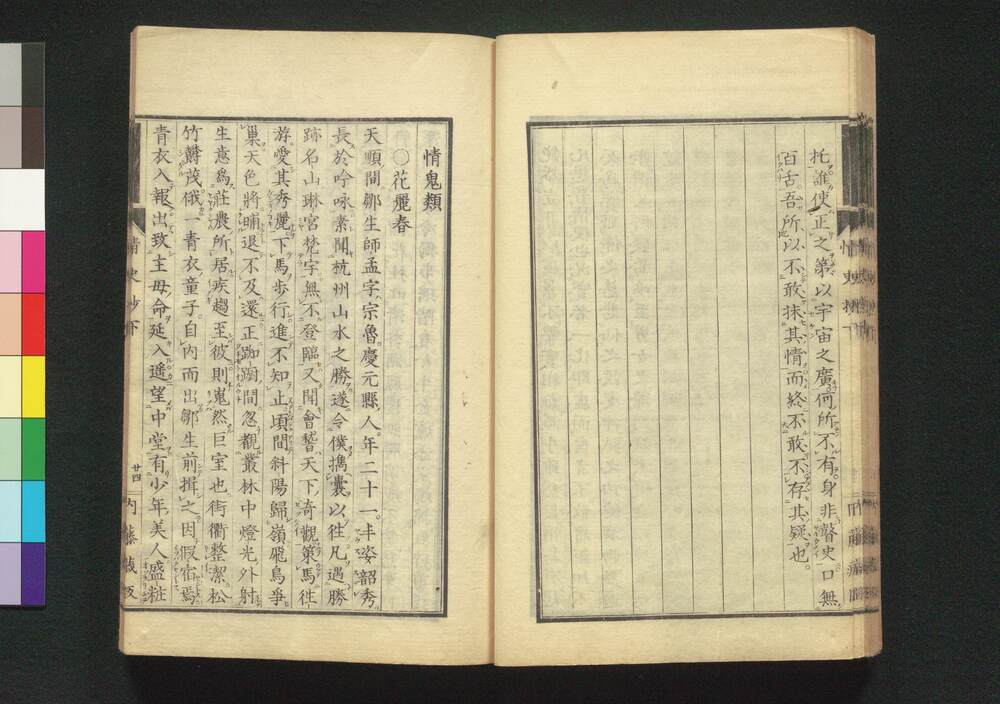 托誰使正之第以宇宙之廣何所不有身非瞽史口無
百舌吾所以不敢抹其情而終不敢不存其疑也。
情鬼類
〇花麗春
天順間鄒生師孟字宗魯慶元縣人年二十一丰姿韶秀
長於吟咏素聞杭州山水之勝遂令僕攜囊以徃凡遇勝
跡名山琳宮梵宇無不登臨又聞會稽天下奇觀策馬徃
游愛其秀麗下馬歩行進不知止頃間斜陽歸嶺飛鳥爭
巢天色將晡退不及還正踟蹰間忽覩叢林中燈光外射
生意爲莊農所居疾趨至彼則嵬然巨室也街衢整潔松
竹欝茂俄一青衣童子自內而出鄒生前揖之因假宿焉
青衣入報出致主母命延入遙望中堂有少年美人盛粧
情史抄下
廿四
內藤